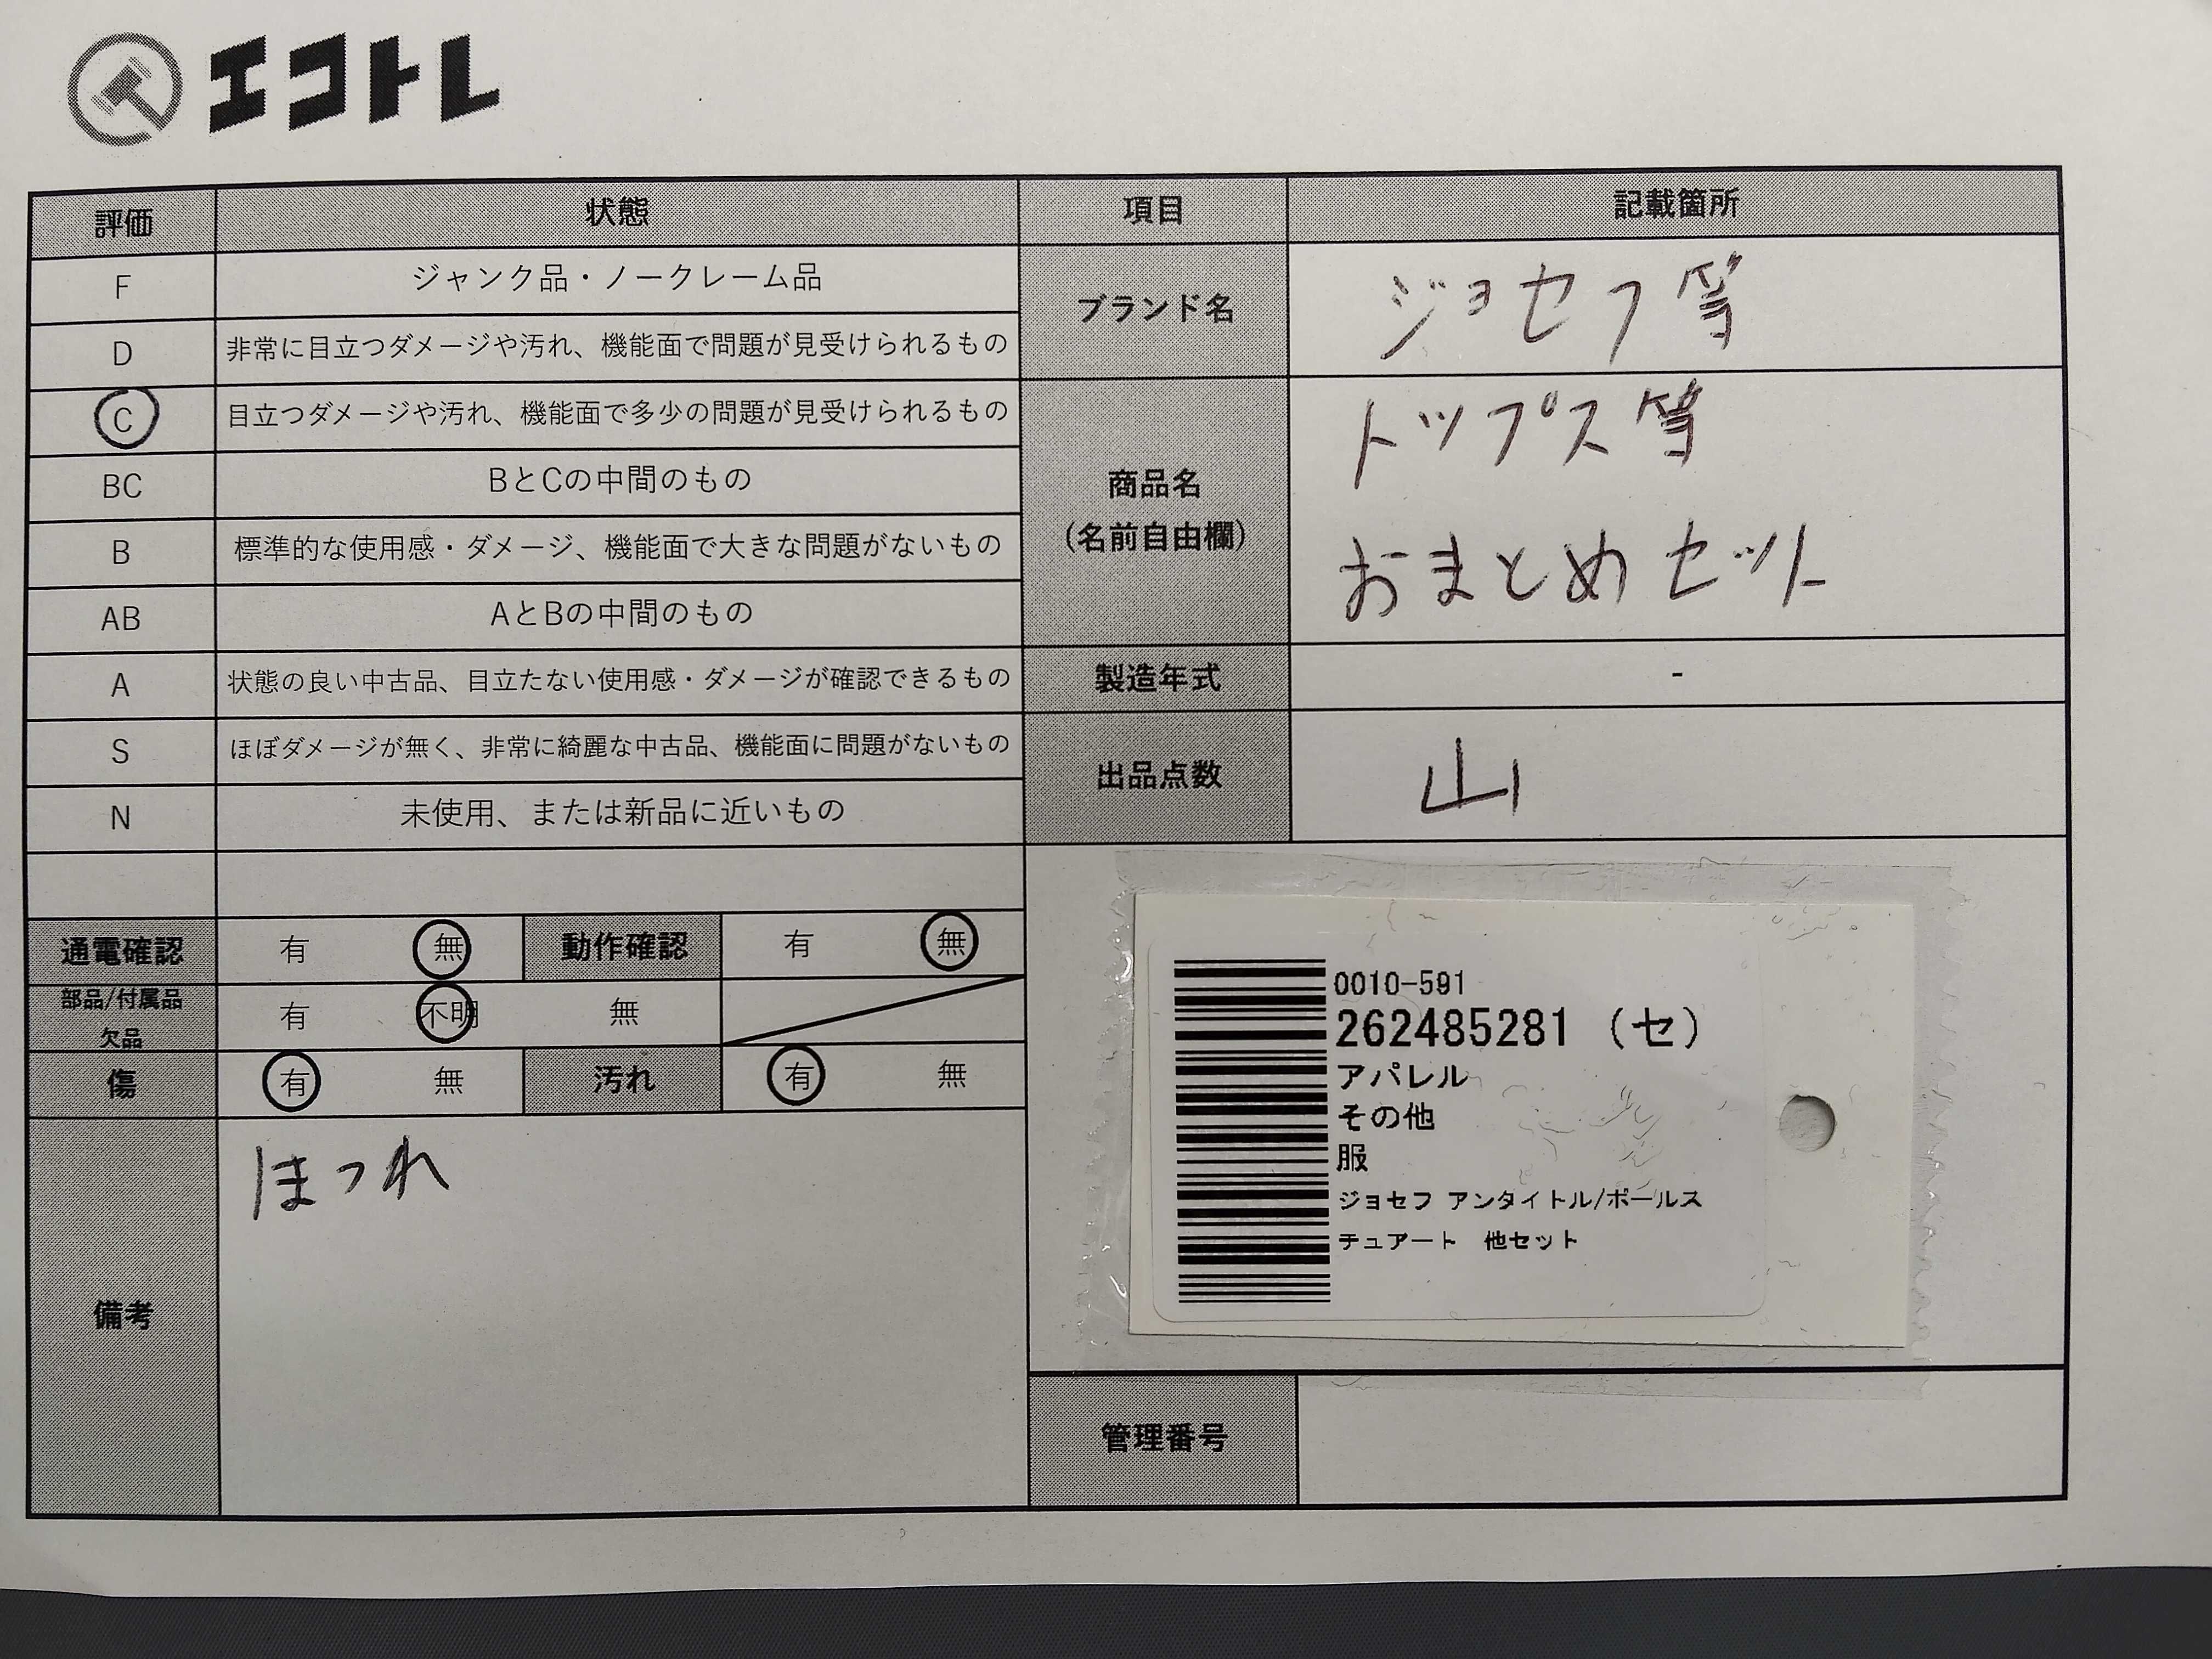 エコトレ
評価 状態 項目 記載箇所
F ジャンク品・ノークレーム品
D 非常に目立つダメージや汚れ、機能面で問題が見受けられるもの
C 目立つダメージや汚れ、機能面で多少の問題が見受けられるもの
BC BとCの中間のもの
B 標準的な使用感・ダメージ、機能面で大きな問題がないもの
AB AとBの中間のもの
A 状態の良い中古品、目立たない使用感・ダメージが確認できるもの
S ほぼダメージが無く、非常に綺麗な中古品、機能面に問題がないもの
N 未使用、または新品に近いもの
通電確認 有 無 動作確認 有 無
部品/付属品
欠品 有 不明 無
傷 有 無 汚れ 有 無
備考 ほつれ
ブランド名 ジョセフ等
商品名
(名前自由欄)
トップス等
おまとめセット
製造年式 -
出品点数
0010-591
262485281 (セ)
アパレル
その他
服
ジョセフ アンタイトル/ポールス
チュアート 他セット
管理番号